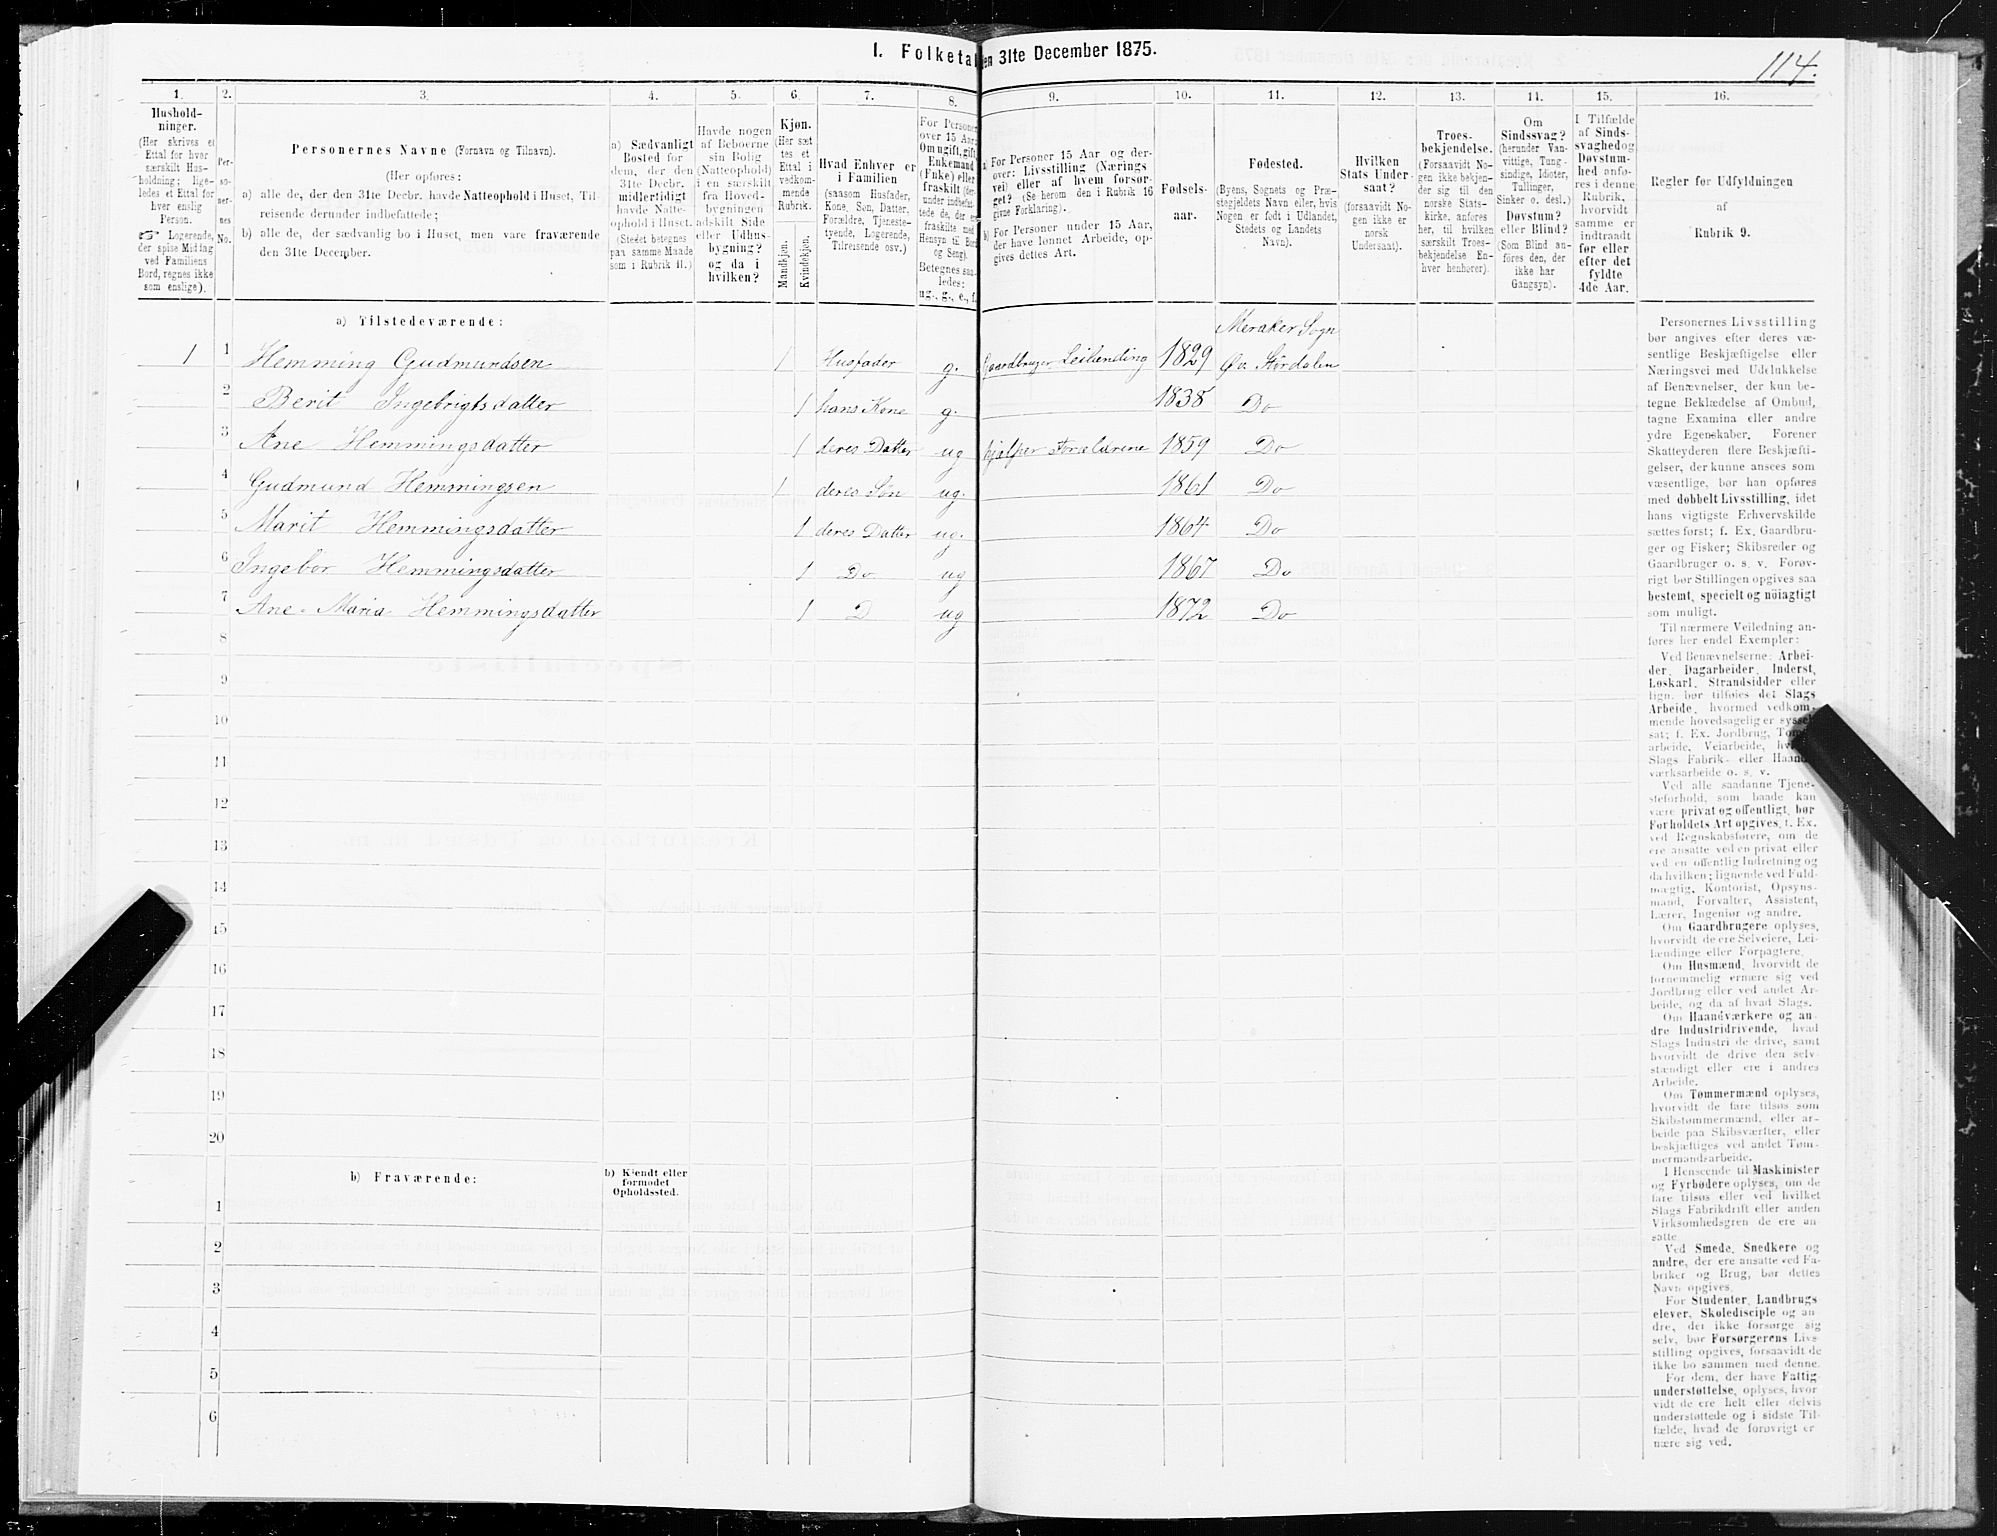 I. Folketal den 31te December 1875.
114.
1. 2. 3. 4. 5. 6. 7. 8. 9. 10. 11. 12. 13. 14. 15. 16.
Hushold-
ninger.
(Her skrives et
Ettal for hver
særskilt Hus-
holdning; lige-
ledes et Ettal for
hver enslig
Person.
☞ Logerende,
der spise Middag
ved Familiens
Bord, regnes ikke
som enslige).
Per-
so-
ner-
nes
No.
Personernes Navne (Fornavn og Tilnavn).
(Her opføres:
a) alle de, der den 31te Decbr. havde Natteophold i Huset, Til-
reisende derunder indbefattede;
b) alle de, der sædvanlig bo i Huset, men vare fraværende
den 31te December.
a) Sædvanligt
Bosted for
dem, der den
31te Decbr.
midlertidigt
havde Natte-
ophold i Huset.
(Stedet betegnes
paa samme Maade
som i Rubrik 11.)
Havde nogen
af Beboerne
sin Bolig
(Natteophold)
i en særskilt
fra Hoved-
bygningen
adskilt Side-
eller Udhus-
bygning?
og da i
hvilken?
Kjøn.
(Her sæt-
tes et
Ettal i
vedkom-
mende
Rubrik.
Mandkjøn.
Kvindekjøn.
Hvad Enhver er
i Familien
(saasom Husfader,
Kone, Søn, Datter,
Forældre, Tjeneste-
tyende, Logerende,
Tilreisende osv.)
For Personer
over 15 Aar:
Om ugift, gift,
Enkemand
(Enke) eller
fraskilt (der-
under indbefat-
tede de, der ere
fraskilte med
Hensyn til Bord
og Seng).
Betegnes saa-
ledes:
ug., g., e., f.
a. For Personer 15 Aar og der-
over: Livsstilling (Nærings-
vei) eller af hvem forsør-
get? (Se herom den i Rubrik 16
givne Forklaring).
b) For Personer under 15 Aar,
der have lønnet Arbeide, op-
gives dettes Art.
Fødsels-
aar.
Fødested.
(Byens, Sognets og Præ-
stegjeldets Navn eller, hvis
Nogen er født i Udlandet,
Stedets og Landets
Navn).
Hvilken
Stats Under-
saat?
(forsaavidt No-
gen ikke er
norsk
Undersaat).
Troes-
bekjendelse.
(Forsaavidt No-
gen ikke bekjen-
der sig til den
norske Stats-
kirke, anføres
her, til hvilken
særskilt Troes-
bekjendelse En-
hver henhører).
Om
Sindssvag?
(herunder Van-
vittige, Tung-
sindige, Idioter,
Tullinger,
Sinker o. desl.)
Døvstum?
eller Blind?
(Som Blind an-
føres den, der
ikke har
Gangsyn).
I Tilfælde
af Sinds-
svaghed og
Døvstum-
hed anfø-
res i denne
Rubrik,
hvorvidt
samme er
indtraadt
før eller
efter det
fyldte
4de Aar.
Regler for Udfyldningen
af
Rubrik 9.
a) Tilstedeværende:
Meraker Sogn
1 1 Hemming Gudmundsen 1 Husfader g. Gaardbruger Leilending 1829 Øv. Størdalen
2 Berit Ingebrigtsdatter 1 hans Kone g. 1838 Do
3 Ane Hemmingsdatter 1 deres Datter ug hjelper Forældrene 1859 Do
4 Gudmund Hemmingsen 1 deres Søn ug. 1861 Do
5 Marit Hemmingsdatter 1 deres Datter ug. 1864 Do
6 Ingebor Hemmingsdatter 1 Do ug 1867 Do
7 Ane-Maria Hemmingsdatter 1 D ug 1872 Do
8
9
10
11
12
13
14
15
16
17
18
19
20
b) Fraværende:
b) Kjendt eller
formodet
Opholdssted.
1
2
3
4
5
6
Personernes Livsstilling
bør angives efter deres væ-
sentlige Beskjæftigelse eller
Næringsvei med Udelukkelse
af Benævnelser, der kun be-
tegne Beklædelse af Ombud,
tagne Examina eller andre
ydre Egenskaber. Forener
Skatteyderen flere Beskjæfti-
gelser, der kunne ansees som
væsentlige, bør han opføres
med dobbelt Livsstilling, idet
hans vigtigste Erhvervskilde
sættes først; f. Ex. Gaardbru-
ger og Fisker; Skibsreder og
Gaardbruger o. s. v. Forøv-
rigt bør Stillingen opgives saa
bestemt, specielt og nøiagtigt
som muligt.
Til nærmere Veiledning an-
føres her endel Exempler:
Ved Benævnelserne: Arbei-
der, Dagarbeider, Inderst,
Løskarl, Strandsidder eller
lign. bør tilføies det Slags
Arbeide, hvormed vedkom-
mende hovedsagelig er syssel-
sat; f. Ex. Jordbrug, Tømmer-
arbeide, Veiarbeide, hvad
Slags Fabrik- eller Haand-
værksarbeide o. s. v.
Ved alle saadanne Tjene-
steforhold, som baade kan
være privat og offentligt, bør
Forholdets Art opgives, f. Ex.
ved Regnskabsførere, om de
ere ansatte ved en privat eller
ved en offentlig Indretning og
da hvilken; lignende ved Fuld-
mægtig, Kontorist, Opsyns-
mand, Forvalter, Assistent,
Lærer, Ingeniør og andre.
Om Gaardbrugere oplyses,
hvorvidt de ere Selveiere, Lei-
lændinge eller Forpagtere.
Om Husmænd, hvorvidt de
fornemmelig ernære sig ved
Jordbrug eller ved andet Ar-
beide, og da af hvad Slags.
Om Haandværkere og an-
dre Industridrivende, hvad
Slags Industri de drive, samt
hvorvidt de drive den selv-
stændigt eller ere i andres
Arbeide.
Om Tømmermænd oplyses,
hvorvidt de fare tilsøs som
Skibstømmermænd, eller ar-
beide paa Skibsværfter, eller
beskjæftiges ved andet Tøm-
mermandsarbeide.
I Henseende til Maskinister
og Fyrbødere oplyses, om de
fare tilsøs eller ved hvilket
Slags Fabrikdrift eller anden
Virksomhedsgren de ere an-
satte.
Ved Smede, Snedkere og
andre, der ere ansatte ved Fa-
briker og Brug, bør dettes
Navn opgives.
For Studenter, Landbrugs
elever, Skoledisciple og an-
dre, der ikke forsørge sig
selv, bør Forsørgerens Livs-
stilling opgives, forsaavidt de
ikke bo sammen med denne.
For dem, der have Fattig-
understøttelse, oplyses, hvor-
vidt de ere helt eller delvis
understøttede og i sidste Til-
fælde, hvad de forøvrigt er-
nære sig ved.